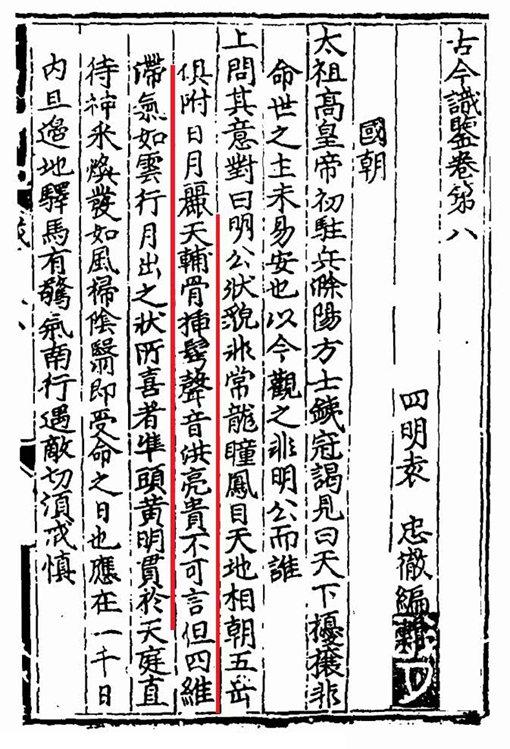 古今識鑒卷第八
四明袁 忠徹編輯
國朝
太祖高皇帝初駐兵滁陽方士鐵冠謁見曰天下擾攘非
命世之主未易安也以今觀之非明公而誰
上問其意對曰明公狀貌非常龍瞳鳳目天地相朝五岳
俱附日月麗天輔骨揷鬓聲音洪亮貴不可言但四維
滯氣如雲行月出之狀所喜者準頭黃明貫於天庭直
待神氷煥發如風掃陰翳即受命之日也應在一千日
內旦邊地驛馬有驚氣南行遇敵切須戒慎